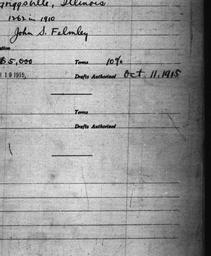 Griggsville, Illinois
1262 in 1910
John S. Felmley
$5,000 Terms 10%
19 1915, Drafts Authorized Oct 11, 1915
Terms
Drafts Authorized